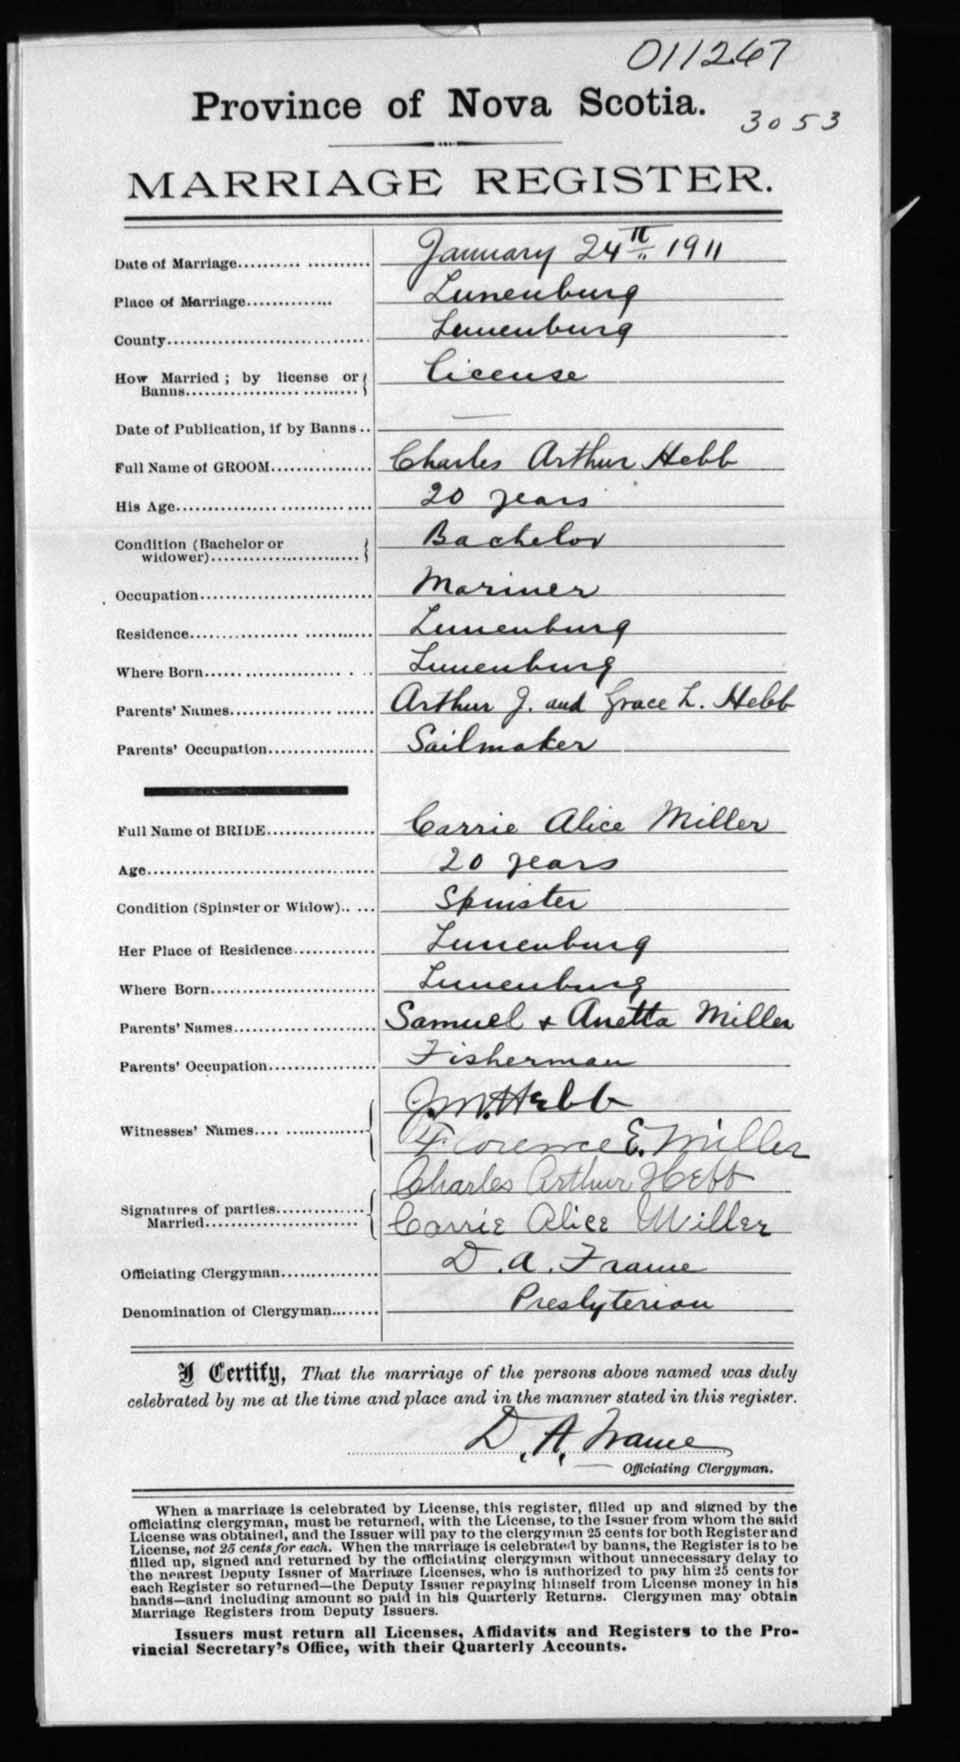 011267
Province of Nova Scotia.
3053
MARRIAGE REGISTER.
Date of Marriage.......... .......... January 24th 1911
Place of Marriage............. Lunenburg
County................................ Lunenburg
How Married ; by license or Banns.................. ......... License
Date of Publication, if by Banns .. —
Full Name of GROOM................ Charles Arthur Hebb
His Age................ ............... 20 years
Condition (Bachelor or widower).......................... Bachelor
Occupation........................... Mariner
Residence................. ........... Lunenburg
Where Born...... ................. . .. Lunenburg
Parents' Names................ ...... Arthur J. and Grace L. Hebb
Parents' Occupation................. Sailmaker
Full Name of BRIDE................. Carrie Alice Miller
Age.................................... 20 years
Condition (Spinster or Widow).. .... Spinster
Her Place of Residence............. Lunenburg
Where Born.......................... Lunenburg
Parents' Names............ .......... Samuel & Anetta Miller
Parents' Occupation................. Fisherman
Witnesses' Names.... ............... J.M. Hebb
Florence E. Miller
Signatures of parties.............. Charles Arthur Hebb
Married........................ Carrie Alice Miller
Officiating Clergyman............... D. A. Frame
Denomination of Clergyman........ Presbyterian
I Certify, That the marriage of the persons above named was duly
celebrated by me at the time and place and in the manner stated in this register.
D. A. Frame
Officiating Clergyman.
When a marriage is celebrated by License, this register, filled up and signed by the
officiating clergyman, must be returned, with the License, to the Issuer from whom the said
License was obtained, and the Issuer will pay to the clergyman 25 cents for both Register and
License, not 25 cents for each. When the marriage is celebrated by banns, the Register is to be
filled up, signed and returned by the officiating clergyman without unnecessary delay to
the nearest Deputy Issuer of Marriage Licenses, who is authorized to pay him 25 cents for
each Register so returned—the Deputy Issuer repaying himself from License money in his
hands—and including amount so paid in his Quarterly Returns. Clergymen may obtain
Marriage Registers from Deputy Issuers.
Issuers must return all Licenses, Affidavits and Registers to the Pro-
vincial Secretary's Office, with their Quarterly Accounts.